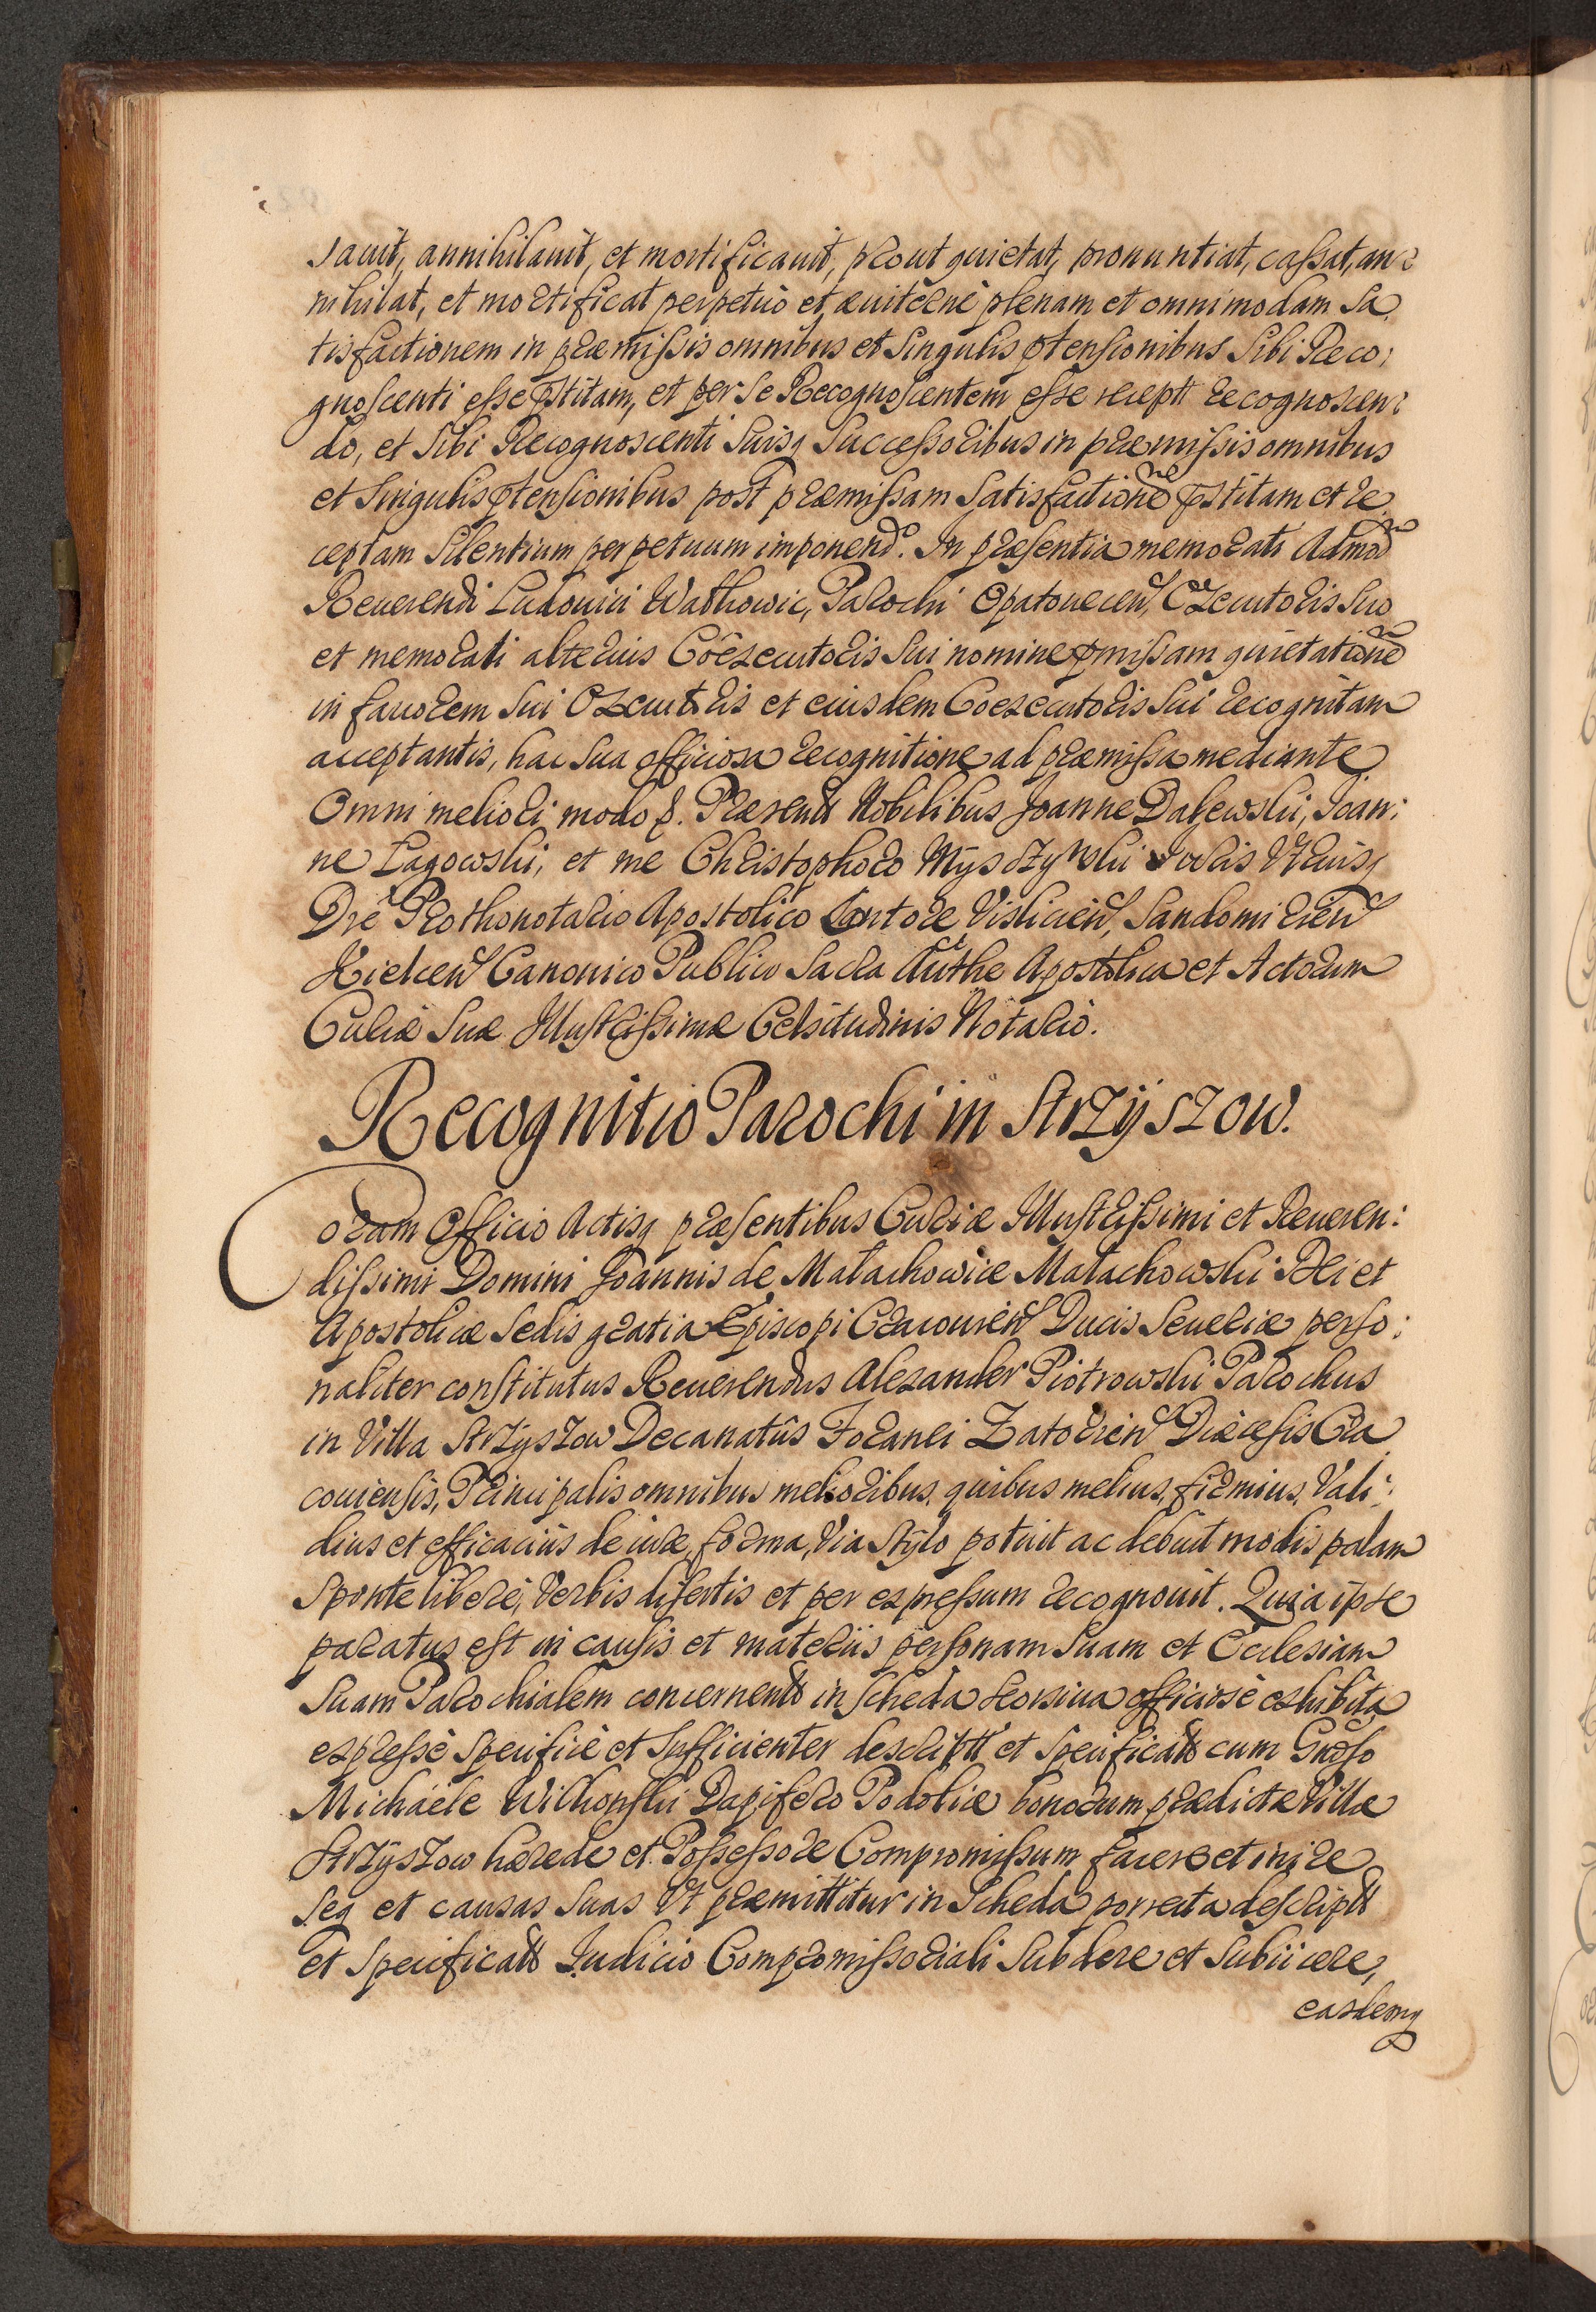 sauit, annihilauit, et mortificauit, prout quietat, pronuntiat, caſsat, an:
nihilat, et mortificat perpetuò et æuiternè plenam et omnimodam Sa,
tisfactionem in præmiſsis omnibus et Singulis ꝓtenſionibus Sibi Reco:
gnoſcenti eſse ꝓstitam, et per Se Recognoſcentem eſse recept̃ recognoscen:
do, et Sibi Recognoscenti Suisq Succeſsoribus in præmiſsis omnibus
et Singulis ꝓtenſionibus post præmiſsam Satisfactionẽ ꝓstitam et re,
ceptam Silentium perpetuum imponendº. In præſentia memorati Admod
Reuerendi Ludouici Wathowic, Parochi Opatouecen, Executoris Suo
et memorati alterius Coẽxecutoris Sui nomine ꝓmiſsam quietationẽ
in fauorem Sui Executoris et eiusdem Coexecutoris Sui recognitam
acceptantis, hac Sua officiosa recognitione ad præmiſsa mediante
Omni meliori modo &. Præsentt Nobilibus Joanne Dalewski, Joan:
ne Łagowski, et me Christophoro Mysczynski Juris Vtriusq
Dre Prothonotario Apostolico Cantore Visliciens, Sandomiriens
Kielcens Canonico Publico Sacra Authe Apostolica et Actorum
Curiæ Suæ Illuſtriſsimæ Celsitudinis Notario.
Recognitio Parochi in Strzyszow.
Coram Officio Actisq præſentibus Curiæ Illuſtriſsimi et Reueren:
diſsimi Domini Joannis de Małachowice Małachowski Dei et
Apostolicæ Sedis gratia Episcopi Cracouiens Ducis Seueriæ perſo:
naliter conſtitutus Reuerendus Alexander Piotrowski Parochus
in Villa Strzyszow Decanatûs Foranei Zatoriens Diæceſis Cra
couiensis, Principalis omnibus melioribus, quibus melius, firmius, Vali:
dius et efficaciùs de iure, forma, Via Stylo potuit ac debuit modis palam
Sponte liberè, Verbis diſertis et per expreſsum recognouit. Quia ipse
paratus eſt in cauſis et materiis perſonam Suam et Eccleſiam
Suam Parochialem concernentt in ſcheda seorsiua officiosè exhibita
expreſsè Specificè et Sufficienter descriptt et Specificatt cum Gnoſo
Michaële Wilkonſki Dapifero Podoliæ bonorum prædictæ Villæ
Strzyszow hærede et Poſseſsore Compromiſsum facere et inire
Seq et causas Suas Vt præmittitur in Scheda porrecta deſcriptt
et Specificatt Iudicio Compromiſsoriali Subdere et Subiicere,
easdemq